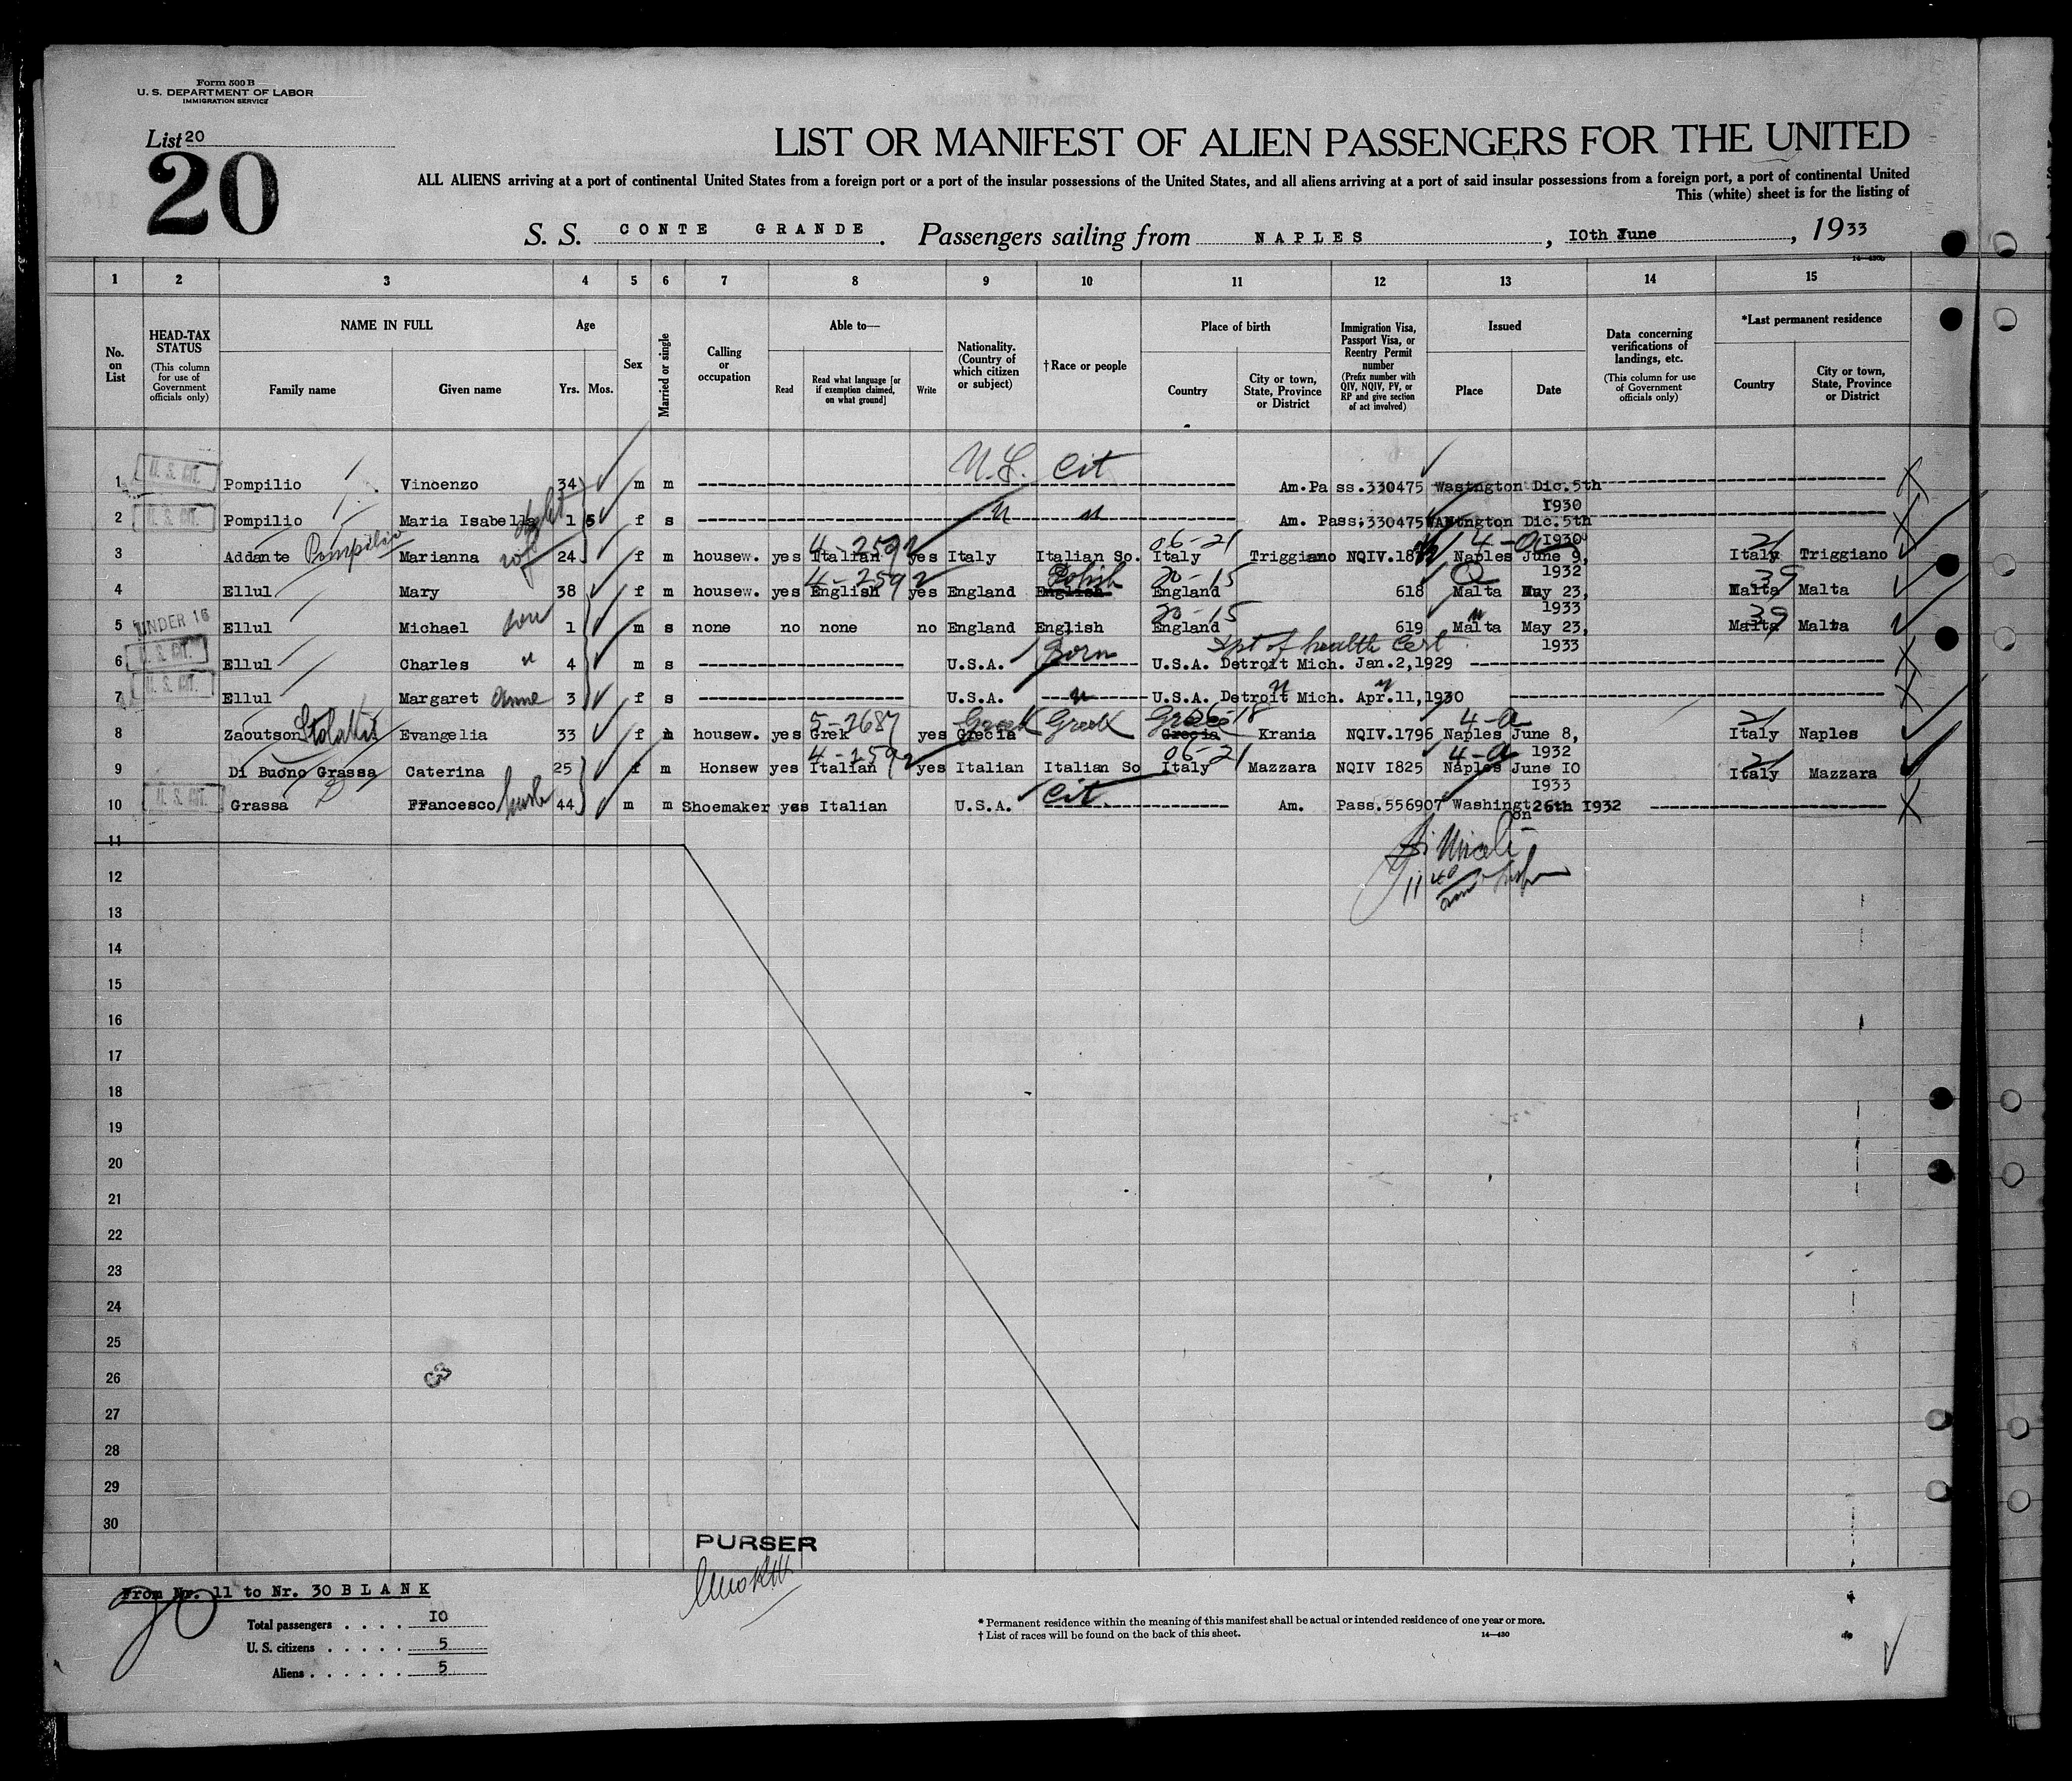 Form 500 B
U. S. DEPARTMENT OF LABOR
IMMIGRATION SERVICE
List 20
20
LIST OR MANIFEST OF ALIEN PASSENGERS FOR THE UNITED
ALL ALIENS arriving at a port of continental United States from a foreign port or a port of the insular possessions of the United States, and all aliens arriving at a port of said insular possessions from a foreign port, a port of continental United
This (white) sheet is for the listing of
S. S. CONTE GRANDE. Passengers sailing from NAPLES, 10th June, 1933
1 2 3 4 5 6 7 8 9 10 11 12 13 14 15
No. on List
HEAD-TAX STATUS (This column for use of Government officials only)
NAME IN FULL Family name Given name
Age Yrs. Mos.
Sex
Married or single
Calling or occupation
Able to— Read Read what language [or if exemption claimed, on what ground] Write
Nationality. (Country of which citizen or subject)
† Race or people
Place of birth Country City or town, State, Province or District
Immigration Visa, Passport Visa, or Reentry Permit number (Prefix number with QIV, NQIV, PV, or RP and give section of act involved)
Issued Place Date
Data concerning verifications of landings, etc. (This column for use of Government officials only)
*Last permanent residence Country City or town, State, Province or District
1 U. S. CIT. Pompilio Vincenzo 34 m m U.S. Cit Am.Pass.330475 Wastngton Dic.5th 1930
2 U. S. CIT. Pompilio Maria Isabella 1 5 f s " " Am. Pass.330475 WAStngton Dic.5th 1930
3 Addante Pompilio Marianna wf 24 f m housew. yes Italian 4-2592 yes Italy Italian So. Italy 06-21 Triggiano Naples 4-a June 9, 1932 Italy 21 Triggiano
4 Ellul Mary 38 f m housew. yes English 4-2592 yes England English England 20-15 618 Malta May 23, 1933 Malta 39 Malta
5 UNDER 16 Ellul Michael son 1 m s none no none no England English England 20-15 619 Malta " May 23, 1933 Malta 39 Malta
6 U. S. CIT. Ellul Charles " 4 m s U.S.A. Born U.S.A. Detroit Mich. Jan.2,1929 Dpt of health Cert
7 U. S. CIT. Ellul Margaret Anne 3 f s U.S.A. " U.S.A. Detroit Mich. Apr.11,1930
8 Zaoutson Evangelia 33 f m housew. yes Grek 5-2687 yes Grecia Greek Greek Grecia Krania NQIV.1796 Naples 4-a June 8, 1932 Italy 21 Naples
9 Di Buono Grassa Caterina 25 f m Honsew yes Italian 4-2592 yes Italian Italian So Italy 06-21 Mazzara NQIV 1825 Naples 4-a June 10 1933 Italy 21 Mazzara
10 U. S. CIT. Grassa Francesco husb 44 m m Shoemaker yes Italian U.S.A. Cit. Am. Pass.556907 Washington 26th 1932
11
12
13
14
15
16
17
18
19
20
21
22
23
24
25
26
27
28
29
30
PURSER
From Nr. 11 to Nr. 30 BLANK
20
Total passengers . . . . 10
U. S. citizens . . . . . 5
Aliens . . . . . . 5
* Permanent residence within the meaning of this manifest shall be actual or intended residence of one year or more.
† List of races will be found on the back of this sheet.
14—430